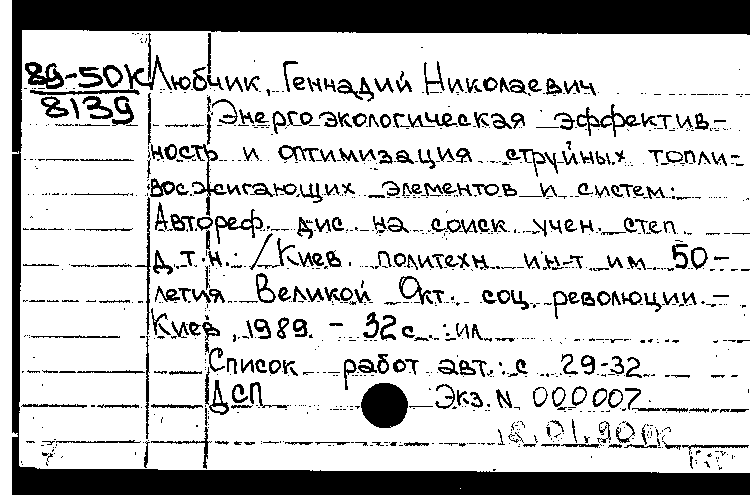 89-50К
8139
Любчик, Геннадий Николаевич
Энергоэкологическая эффектив-
ность и оптимизация струйных топли-
восжигающих элементов и систем:
Автореф. дис. на соиск. учен. степ.
д.т.н. / Киев. политехн. ин-т им 50-
летия Великой Окт. соц. революции. -
Киев, 1989. - 32 с. : ил
Список работ авт.: с 29-32
ДСП Экз. N 000007
18.01.90